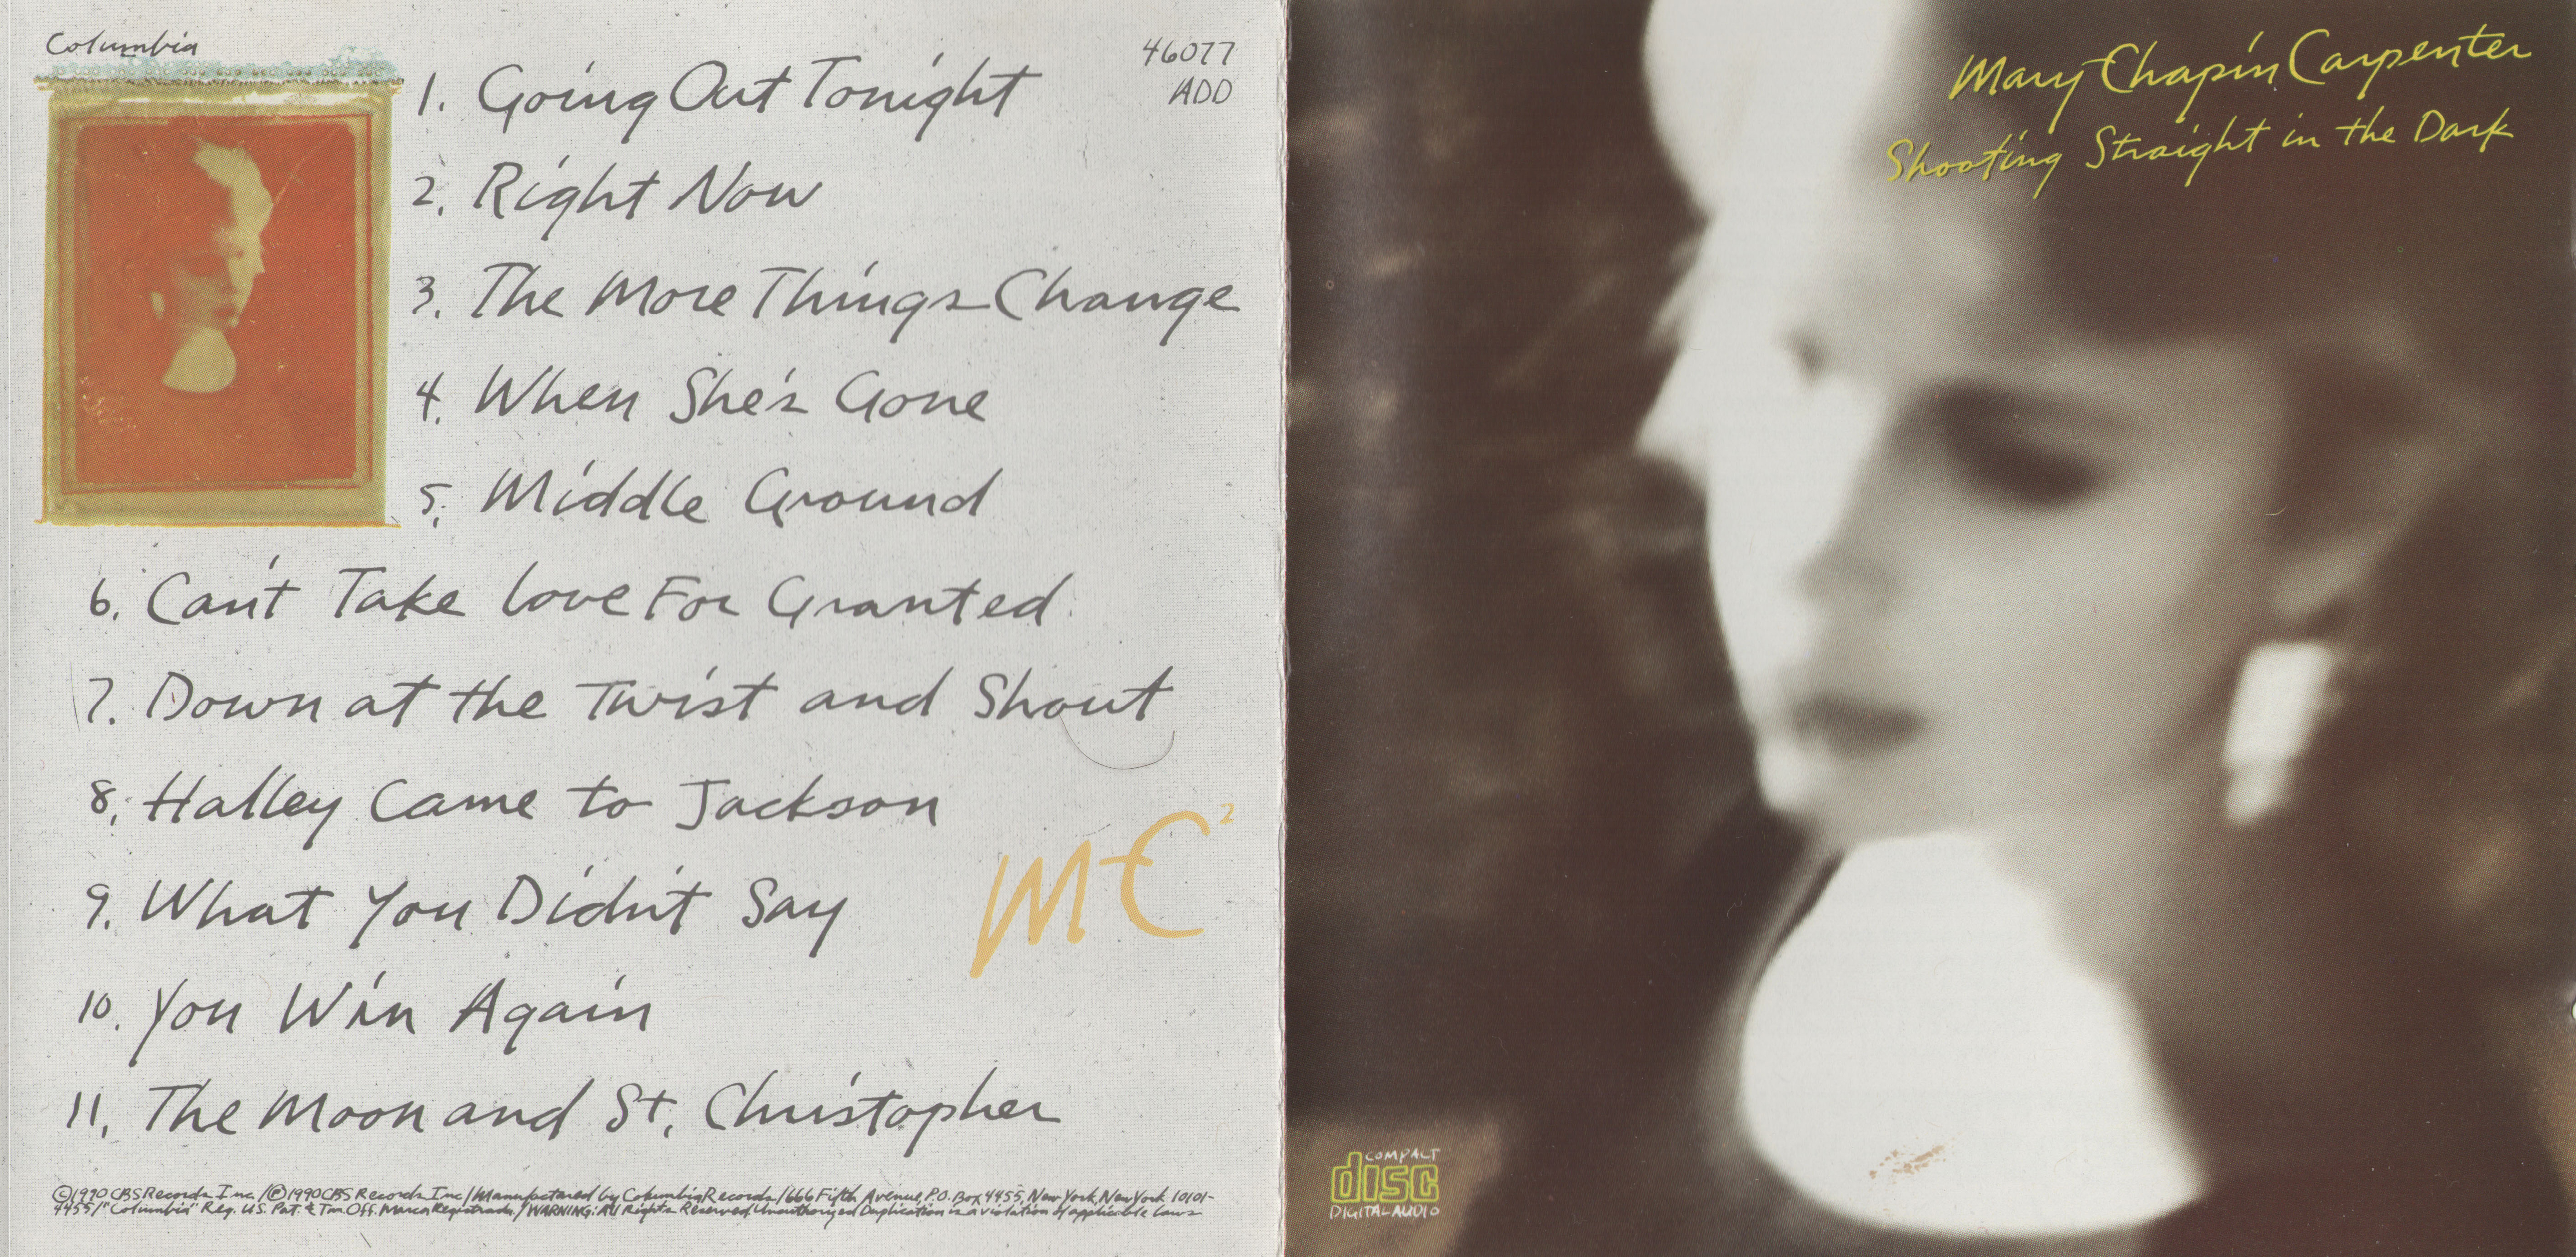 Columbia
46077
ADD
1. Going Out Tonight
2. Right Now
3. The More Things Change
4. When She's Gone
5. Middle Ground
6. Can't Take Love For Granted
7. Down at the Twist and Shout
8. Halley Came to Jackson
9. What You Didn't Say
10. You Win Again
11. The Moon and St. Christopher
MC²
©1990 CBS Records Inc./℗1990 CBS Records Inc/Manufactured by Columbia Records/666 Fifth Avenue, P.O. Box 4455, New York, New York 10101-
4455/"Columbia" Reg. U.S. Pat. & Tm. Off. Marca Registrada./WARNING: All Rights Reserved. Unauthorized Duplication is a violation of applicable laws
Mary Chapin Carpenter
Shooting Straight in the Dark
COMPACT
disc
DIGITAL AUDIO